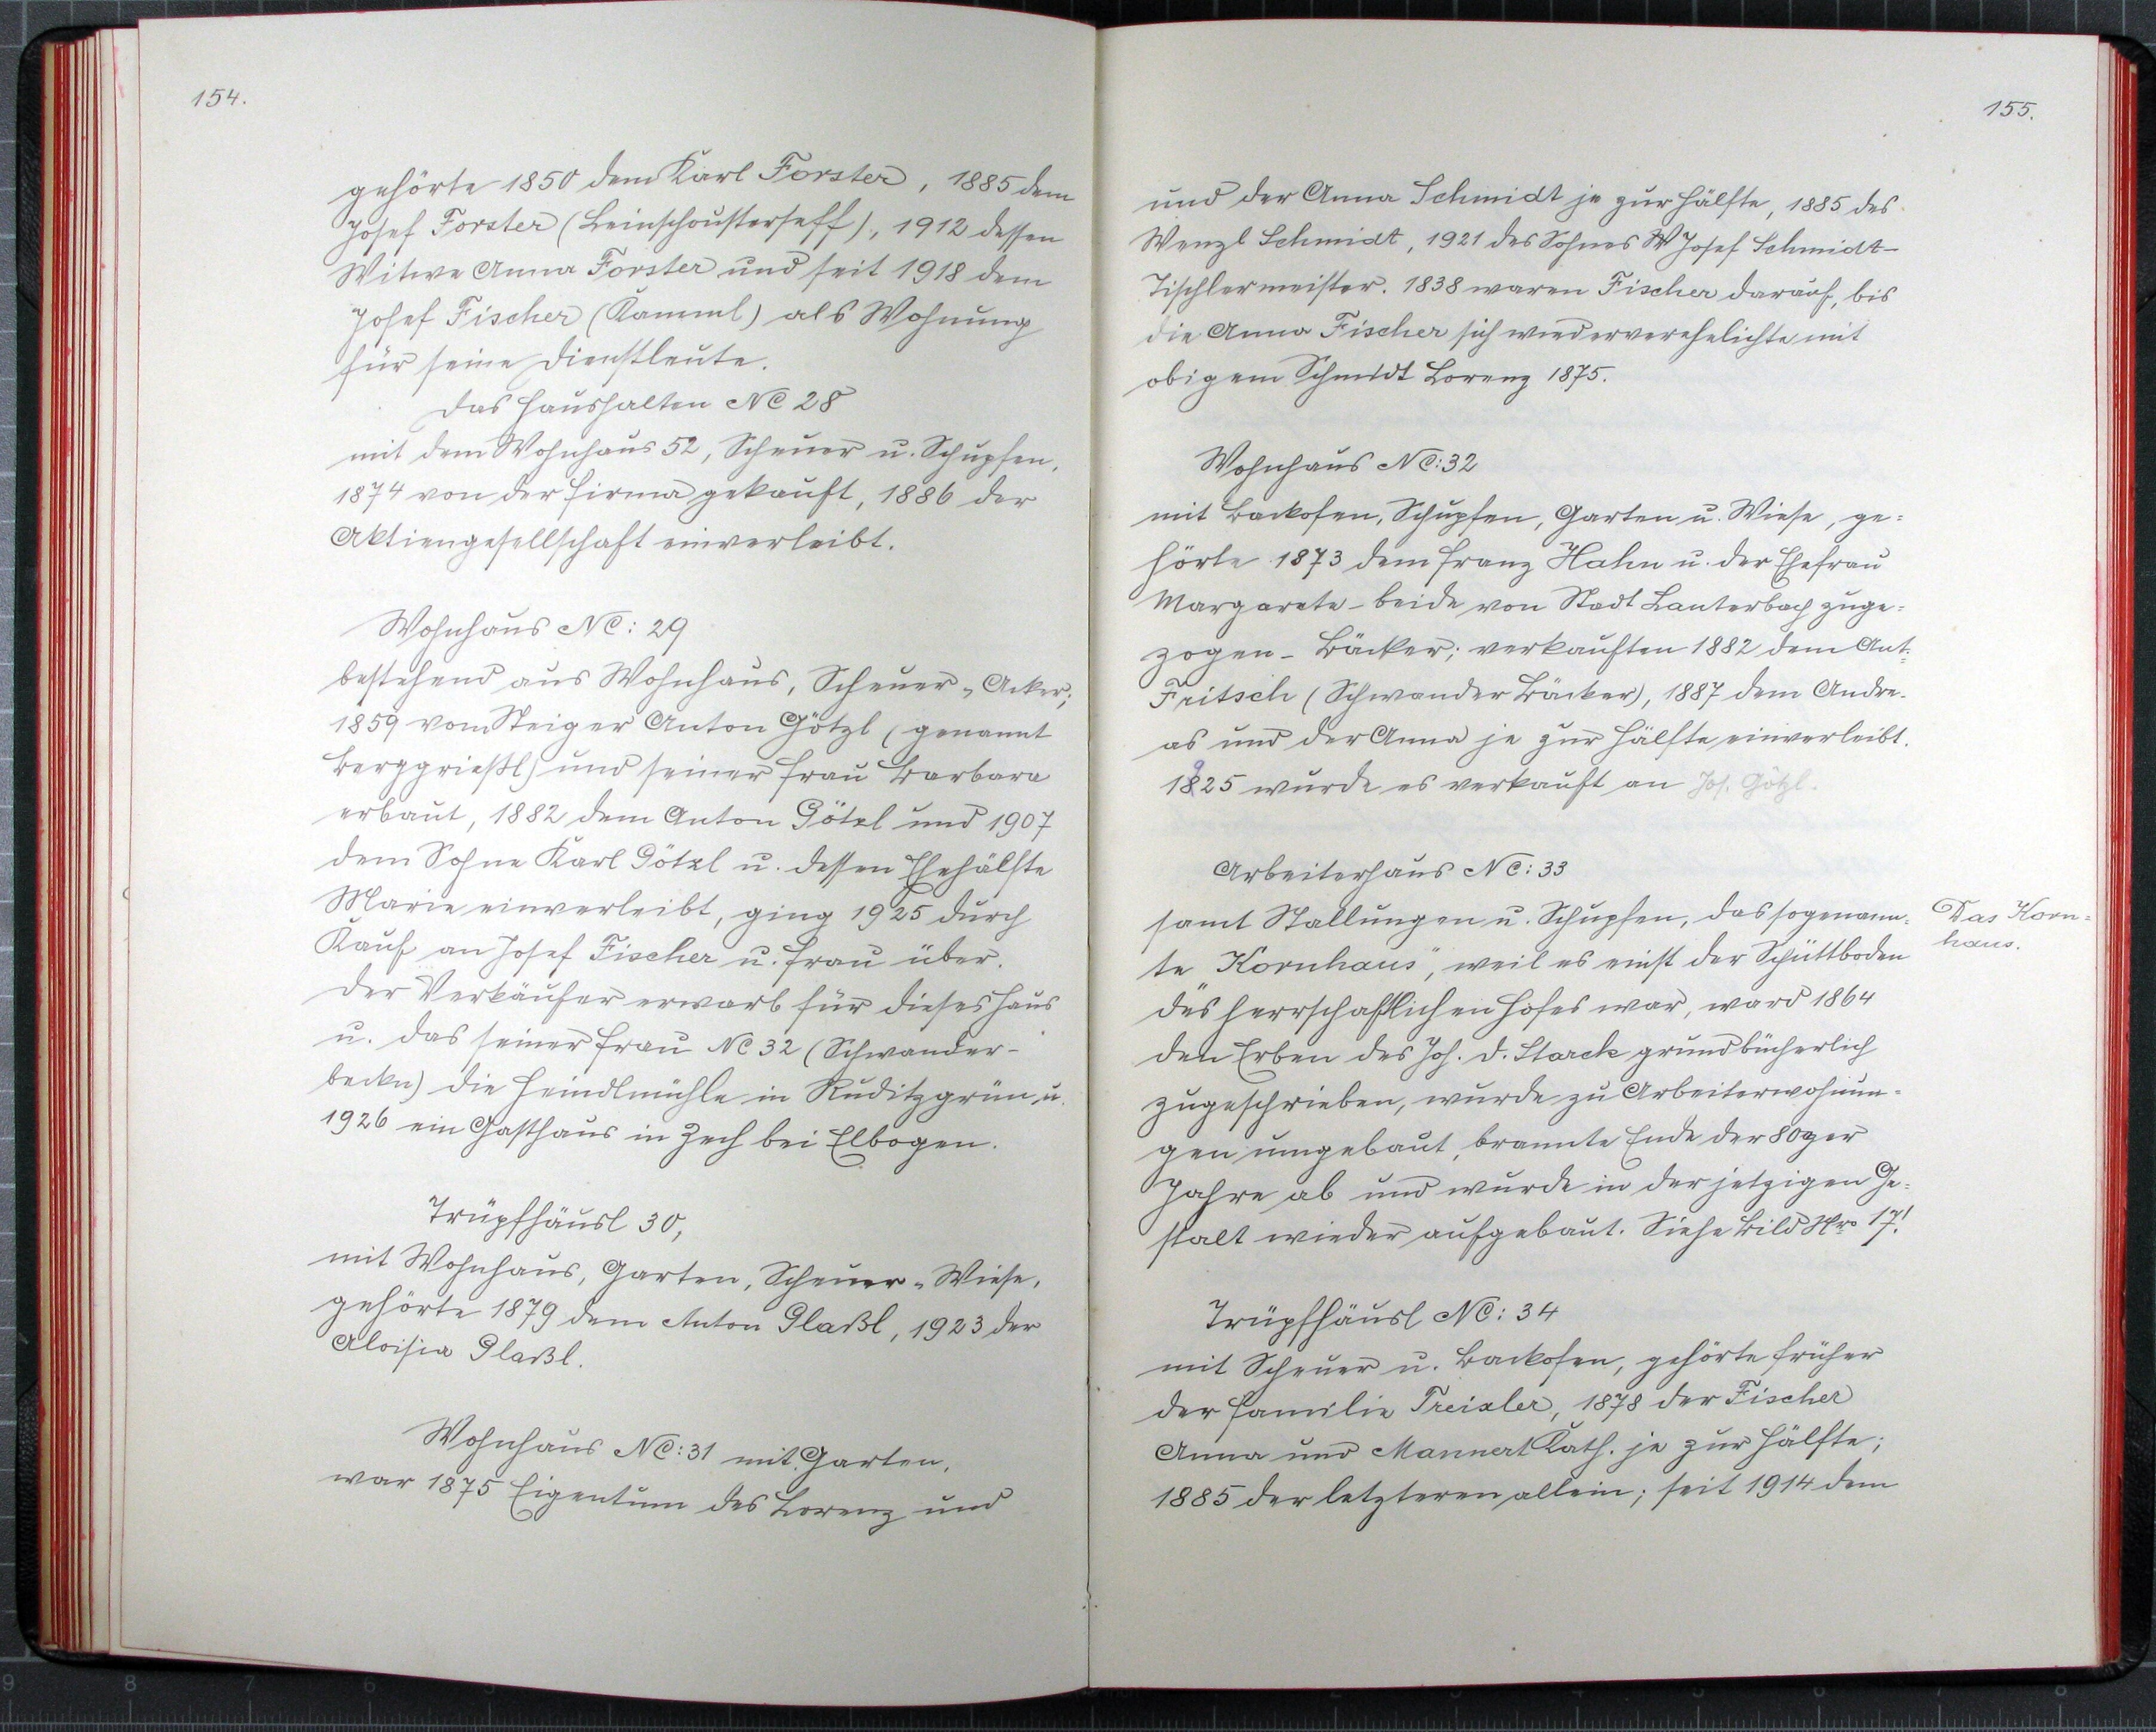 154.
gehörte 1850 dem Karl Forster, 1885 dem
Josef Forster (Beinschousterseff), 1912 dessen
Witwe Anna Forster und seit 1918 dem
Josef Fischer (Kamml) als Wohnung
für seine Dienstleute.
Das Haushalten NC 28
mit dem Wohnhaus 52, Scheuer u. Schupfen,
1874 von der Firma gekauft, 1886 der
Aktiengesellschaft einverleibt.
Wohnhaus NC: 29
bestehend aus Wohnhaus, Scheuer, Acker;
1859 vom Steiger Anton Götzl (genannt
Berggrießl) und seiner Frau Barbara
erbaut, 1882 dem Anton Götzl und 1907
dem Sohne Karl Götzl u. dessen Ehehälfte
Marie einverleibt, ging 1925 durch
Kauf an Josef Fischer u. Frau über.
Der Verkäufer erwarb für dieses Haus
u. das seiner Frau NC 32 (Schwander-
beckn) die Heindlmühle in Ruditzgrün, u.
1926 ein Gasthaus in Zech bei Elbogen.
Trüpfhäusl 30,
mit Wohnhaus, Garten, Scheuer, Wiese,
gehörte 1879 dem Anton Glaßl, 1923 der
Aloisia Glaßl.
Wohnhaus NC: 31 mit Garten,
war 1875 Eigentum des Lorenz und
155.
und der Anna Schmidt je zur Hälfte, 1885 des
Wenzl Schmidt, 1921 des Sohnes W Josef Schmidt-
Tischlermeister. 1838 waren Fischer darauf, bis
die Anna Fischer sich wiederverehelichte mit
obigem Schmidt Lorenz 1875.
Wohnhaus NC: 32
mit Backofen, Schupfen, Garten u. Wiese, ge=
hörte 1873 dem Franz Hahn u. der Ehefrau
Margarete - beide von Stadt Lauterbach zuge=
zogen - Bäcker; verkauften 1882 dem Ant.
Fritsch (Schwander Bäcker), 1887 dem Andre-
as und der Anna je zur Hälfte einverleibt.
1925 wurde es verkauft an Jos. Götzl.
Arbeiterhaus NC: 33
samt Stallungen u. Schupfen, das sogenann=
te "Kornhaus", weil es einst der Schüttboden
des herrschaftlichen Hofes war, ward 1864
den Erben des Joh. D. Starck grundbücherlich
zugeschrieben, wurde zu Arbeiterwohnun=
gen umgebaut, brannte Ende der 80ger
Jahre ab und wurde in der jetzigen Ge=
stalt wieder aufgebaut. Siehe Bild Nro 17!
Das Korn=
haus.
Trüpfhäusl NC: 34
mit Scheuer u. Backofen, gehörte früher
der Familie Treixler, 1878 der Fischer
Anna und Mannert Kath. je zur Hälfte;
1885 der letzteren allein; seit 1914 dem